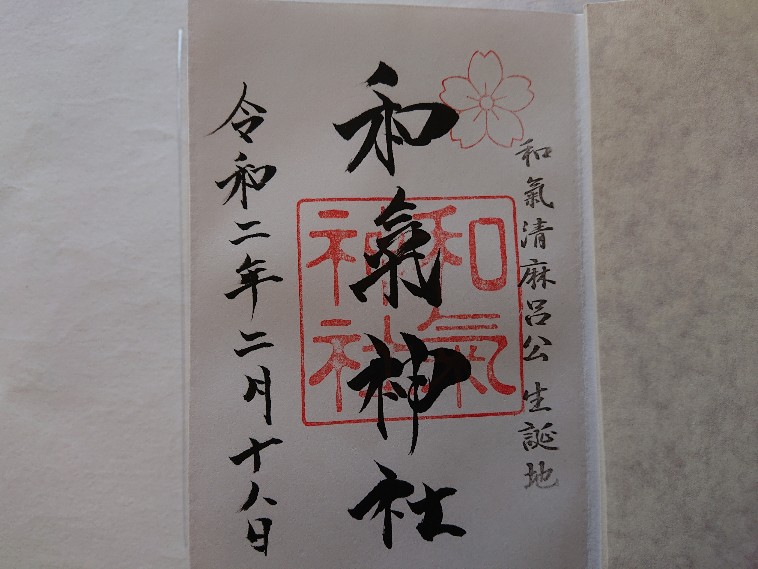 和氣清麻呂公 生誕地
和氣神社
和氣神社
令和二年二月十八日